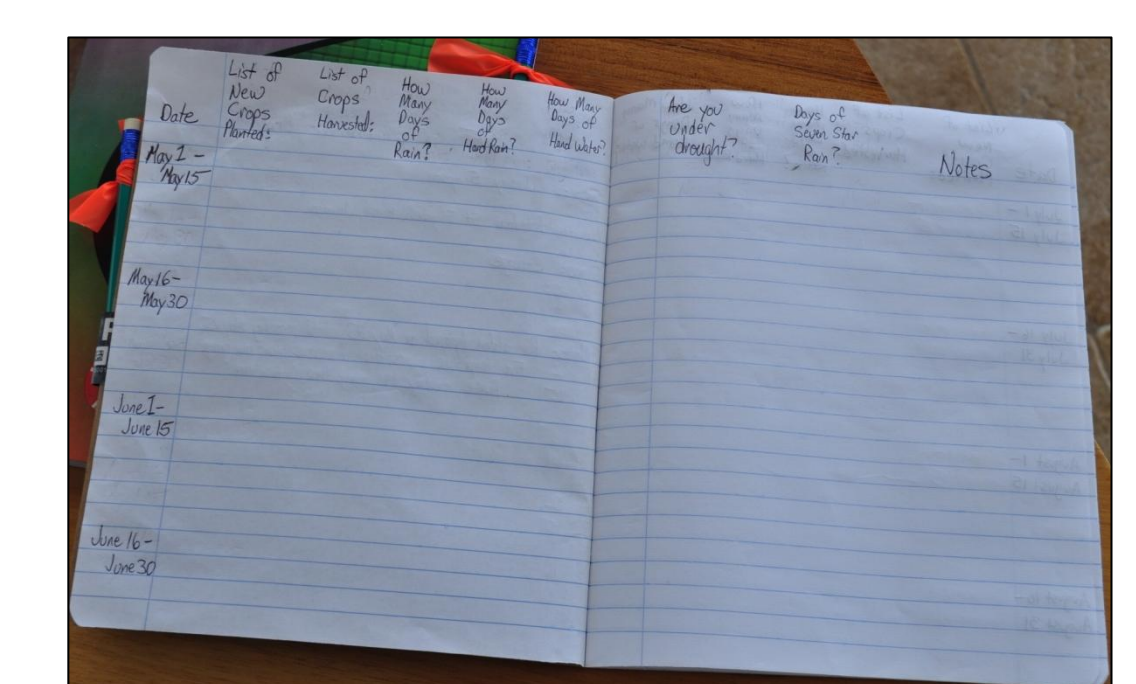 Date
List of
New
Crops
Planted:
List of
Crops
Harvested:
How
Many
Days
of
Rain?
How
Many
Days
of
Hard Rain?
How Many
Days of
Hand Water?
Are you
under
drought?
Days of
Seven Star
Rain?
Notes
May 1 -
May 15
May 16-
May 30
June 1-
June 15
June 16-
June 30